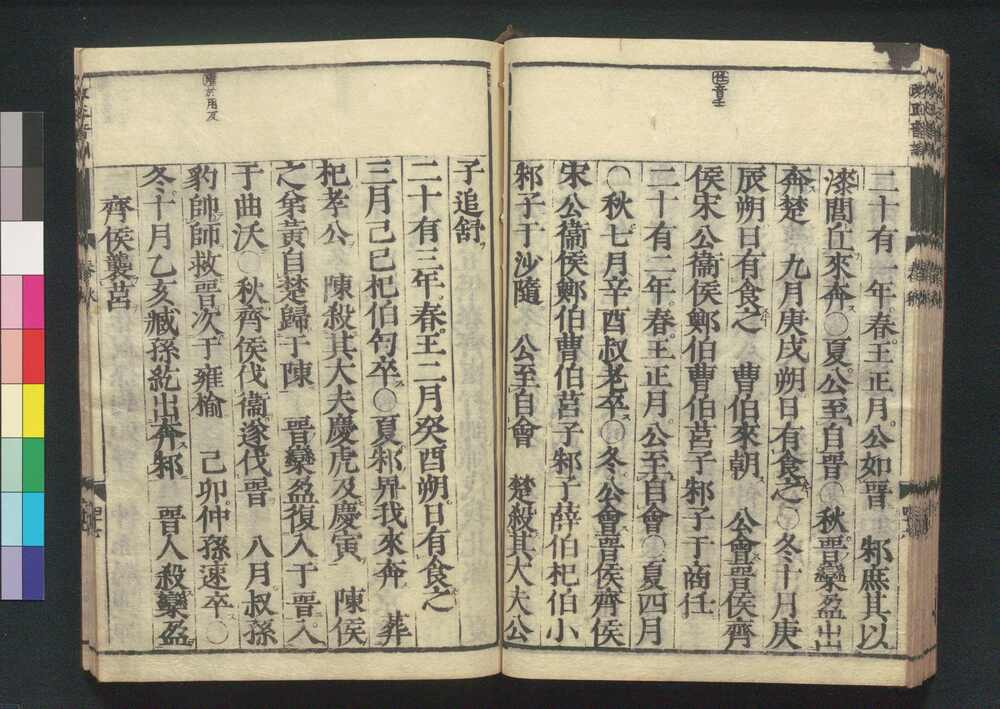 任音壬
二十有一年春王正月公如晉　邾庶其以
漆閭丘來奔○夏公至自晉○秋晉欒盈出
奔楚　九月庚戌朔日有食之○冬十月庚
辰朔日有食之　曹伯來朝　公會晉侯齊
侯宋公衞侯鄭伯曹伯莒子邾子于商任
二十有二年春王正月公至自會○夏四月
○秋七月辛酉叔老卒○冬公會晉侯齊侯
宋公衞侯鄭伯曹伯莒子邾子薛伯杞伯小
邾子于沙隨　公至自會　楚殺其大夫公
子追舒
二十有三年春王二月癸酉朔日有食之
三月己巳杞伯匄卒○夏邾畀我來奔　葬
杞孝公　陳殺其大夫慶虎及慶寅　陳侯
之弟黃自楚歸于陳　晉欒盈復入于晉入
于曲沃○秋齊侯伐衞遂伐晉　八月叔孫
豹帥師救晉次于雍楡　己卯仲孫速卒○
冬十月乙亥臧孫紇出奔邾　晉人殺欒盈
齊侯襲莒